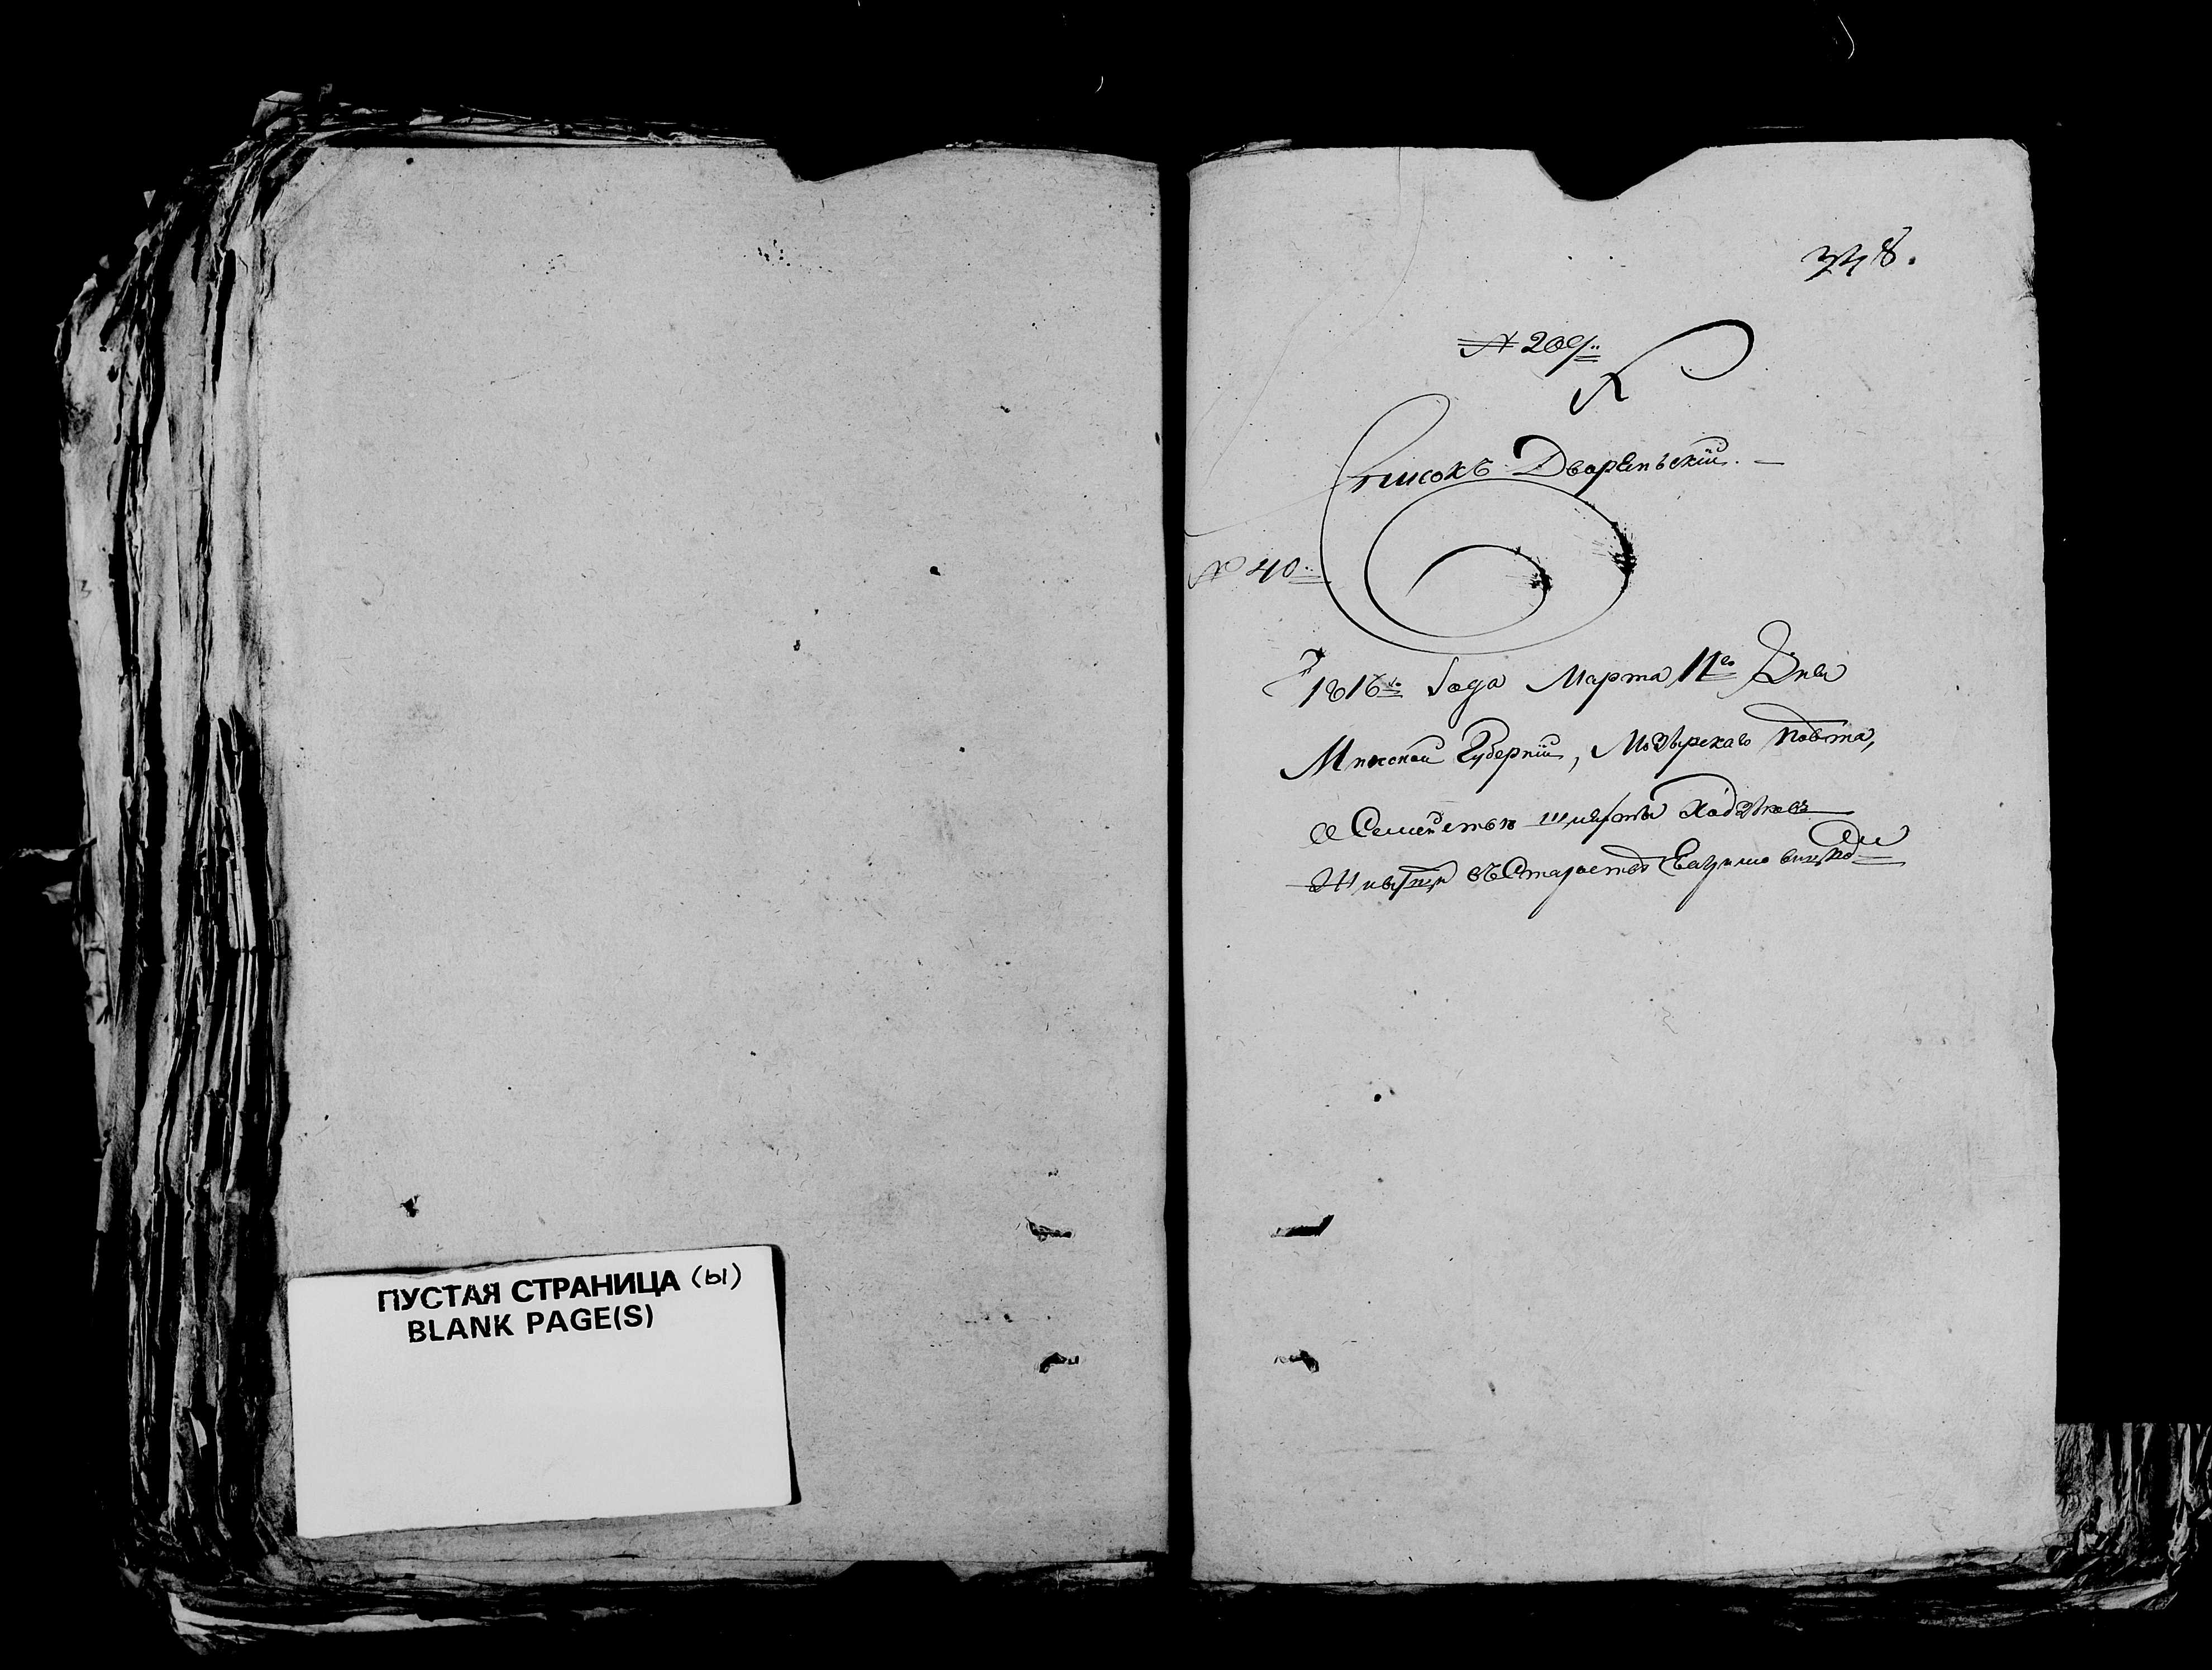 ПУСТАЯ СТРАНИЦА (ы)
BLANK PAGE(S)
348.
№ 209
Списокъ Дворенскій.
№ 40
1816го Года Марта 11го Дня
Минской Губерніи, Мозырскаго Повѣта,
О Семействѣ
въ Старостве